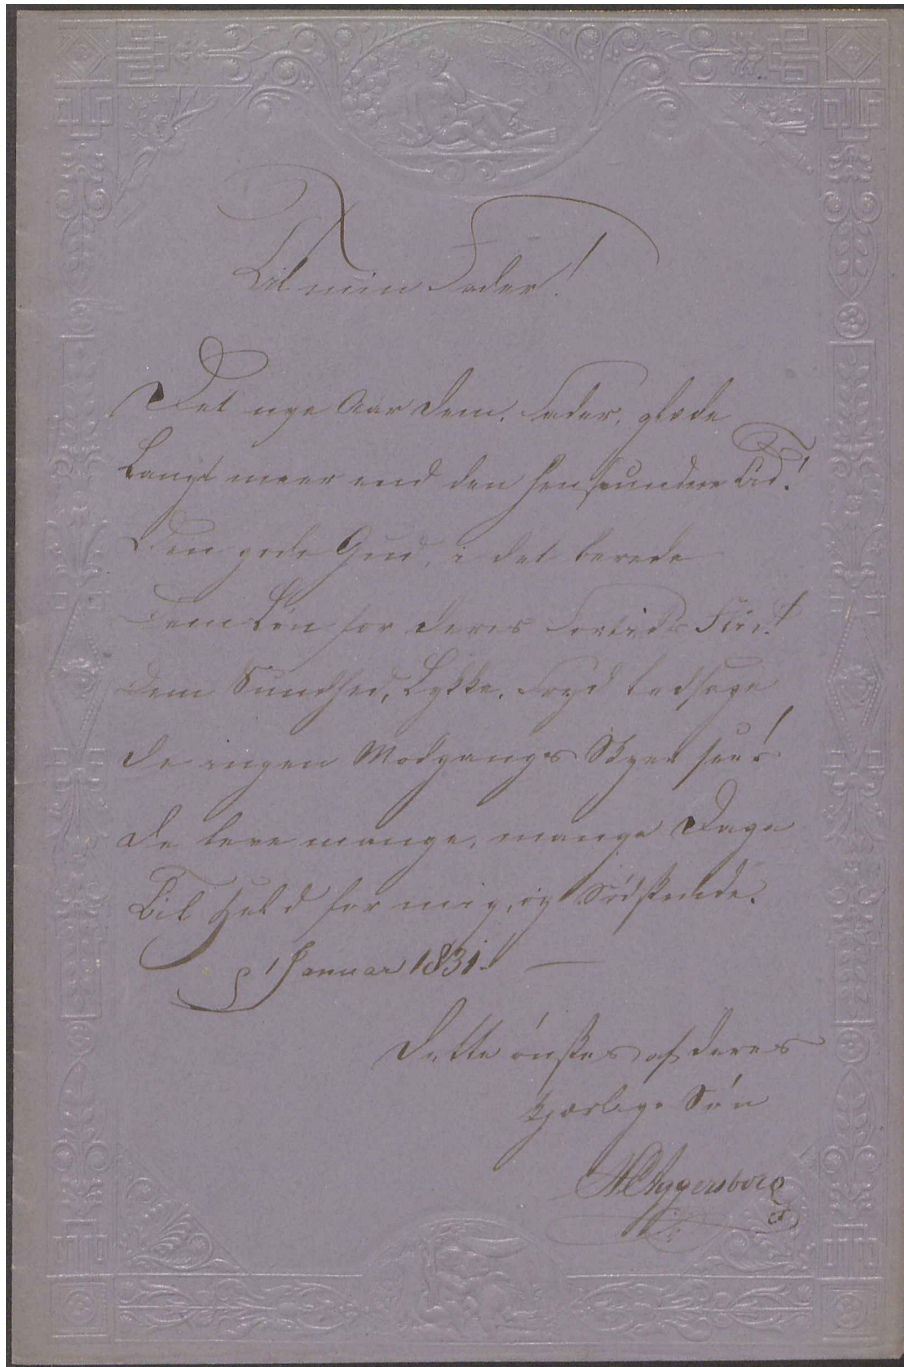 Til min Fader!
Det nye Aar Dem, Fader, glæde
Langt meer end den henrundne Tid!
Den gode Gud, i det berede
Dem Løn for deres Fortids Fliid!
Dem Sundhed, Lykke, Fryd ledsage
De ingen Modgangs Skyer see!
De leve mange, mange Dage
Til Held for mig, og Sødskende.
1 Januar 1831.
Dette ønskes af deres
kjærlige Søn